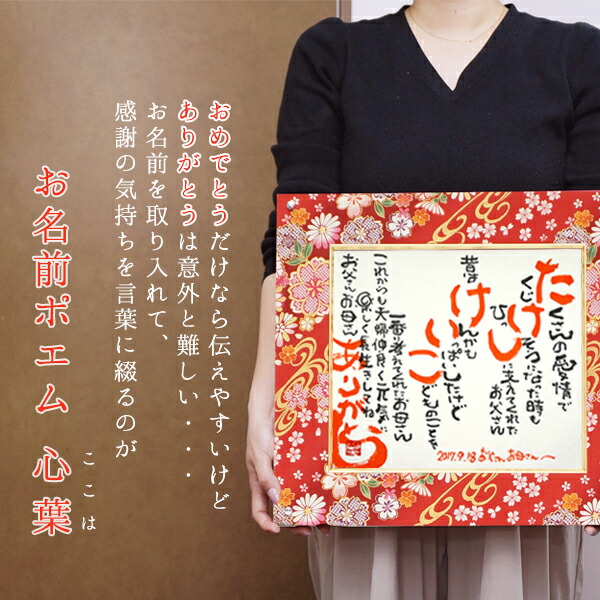 おめでとうだけなら伝えやすいけど
ありがとうは意外と難しい・・・・
お名前を取り入れて、
感謝の気持ちを言葉に綴るのが
お名前ポエム 心葉
ここは
たくさんの愛情で
くじけそうになった時も
ひっしに支えてくれた
お父さん
昔は
けんかも
いっぱいしたけど
こども
一番に考えてくれたお母さん
これからも夫婦仲良く元気に
楽しく長生きしてね
お父さんお母さん
ありがとう
2017.9.18 お父さん、お母さんへ